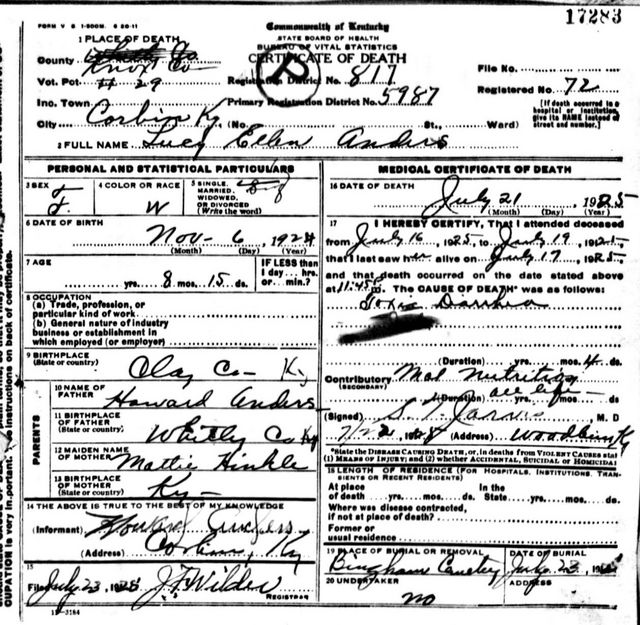 FORM V S 1-500M. 6 20-11
17283
Commonwealth of Kentucky
STATE BOARD OF HEALTH
BUREAU OF VITAL STATISTICS
CERTIFICATE OF DEATH
R
1 PLACE OF DEATH
County Knox Co
Vot. Pct # 29 Registration District No. 817
File No.
Registered No. 72
Inc. Town Primary Registration District No. 5987
[If death occurred in a hospital or institution, give its NAME instead of street and number.]
City Corbin Ky (No. St., Ward)
2 FULL NAME Lucy Ellen Anders
PERSONAL AND STATISTICAL PARTICULARS
3 SEX F.
4 COLOR OR RACE W
5 SINGLE, MARRIED, WIDOWED, OR DIVORCED (Write the word)
6 DATE OF BIRTH Nov- 6, 1924
(Month) (Day) (Year)
7 AGE yrs. 8 mos. 15 ds.
IF LESS than 1 day... hrs. or... min.?
8 OCCUPATION
(a) Trade, profession, or particular kind of work
(b) General nature of industry business or establishment in which employed (or employer)
9 BIRTHPLACE
(State or country) Clay Co- Ky
PARENTS
10 NAME OF FATHER Howard Anders
11 BIRTHPLACE OF FATHER
(State or country) Whitly Co Ky
12 MAIDEN NAME OF MOTHER Mattie Hinkle
13 BIRTHPLACE OF MOTHER
(State or country) Ky-
14 THE ABOVE IS TRUE TO THE BEST OF MY KNOWLEDGE
(Informant) Howard Anders
(Address) Corbin, Ky
15
Filed July 23, 1925 J. F. Wilder
REGISTRAR
11-3184
MEDICAL CERTIFICATE OF DEATH
16 DATE OF DEATH July 21 1925
(Month) (Day) (Year)
17 I HEREBY CERTIFY, That I attended deceased
from July 16 1925, to July 19 1925
that I last saw her alive on July 17 1925
and that death occurred on the date stated above
at 11:45 m. The CAUSE OF DEATH* was as follows:
Toxic Diarrhea
(Duration) yrs. mos. 4 ds.
Contributory Mal Nutrition
(SECONDARY)
(Duration) all life mos. ds
(Signed) S. Jarvis M. D
7/22, 192 (Address) Woodbine Ky
*State the DISEASE CAUSING DEATH, or, in deaths from VIOLENT CAUSES state (1) MEANS OF INJURY; and (2) whether ACCIDENTAL, SUICIDAL or HOMICIDAL
18 LENGTH OF RESIDENCE (FOR HOSPITALS, INSTITUTIONS, TRANSIENTS OR RECENT RESIDENTS)
At place of death yrs. mos. ds. In the State yrs. mos. ds.
Where was disease contracted, if not at place of death?
Former or usual residence
19 PLACE OF BURIAL OR REMOVAL Bingham Cemetery
DATE OF BURIAL July 23, 192
20 UNDERTAKER no
CUPATION is very important. instructions on back of certificate.